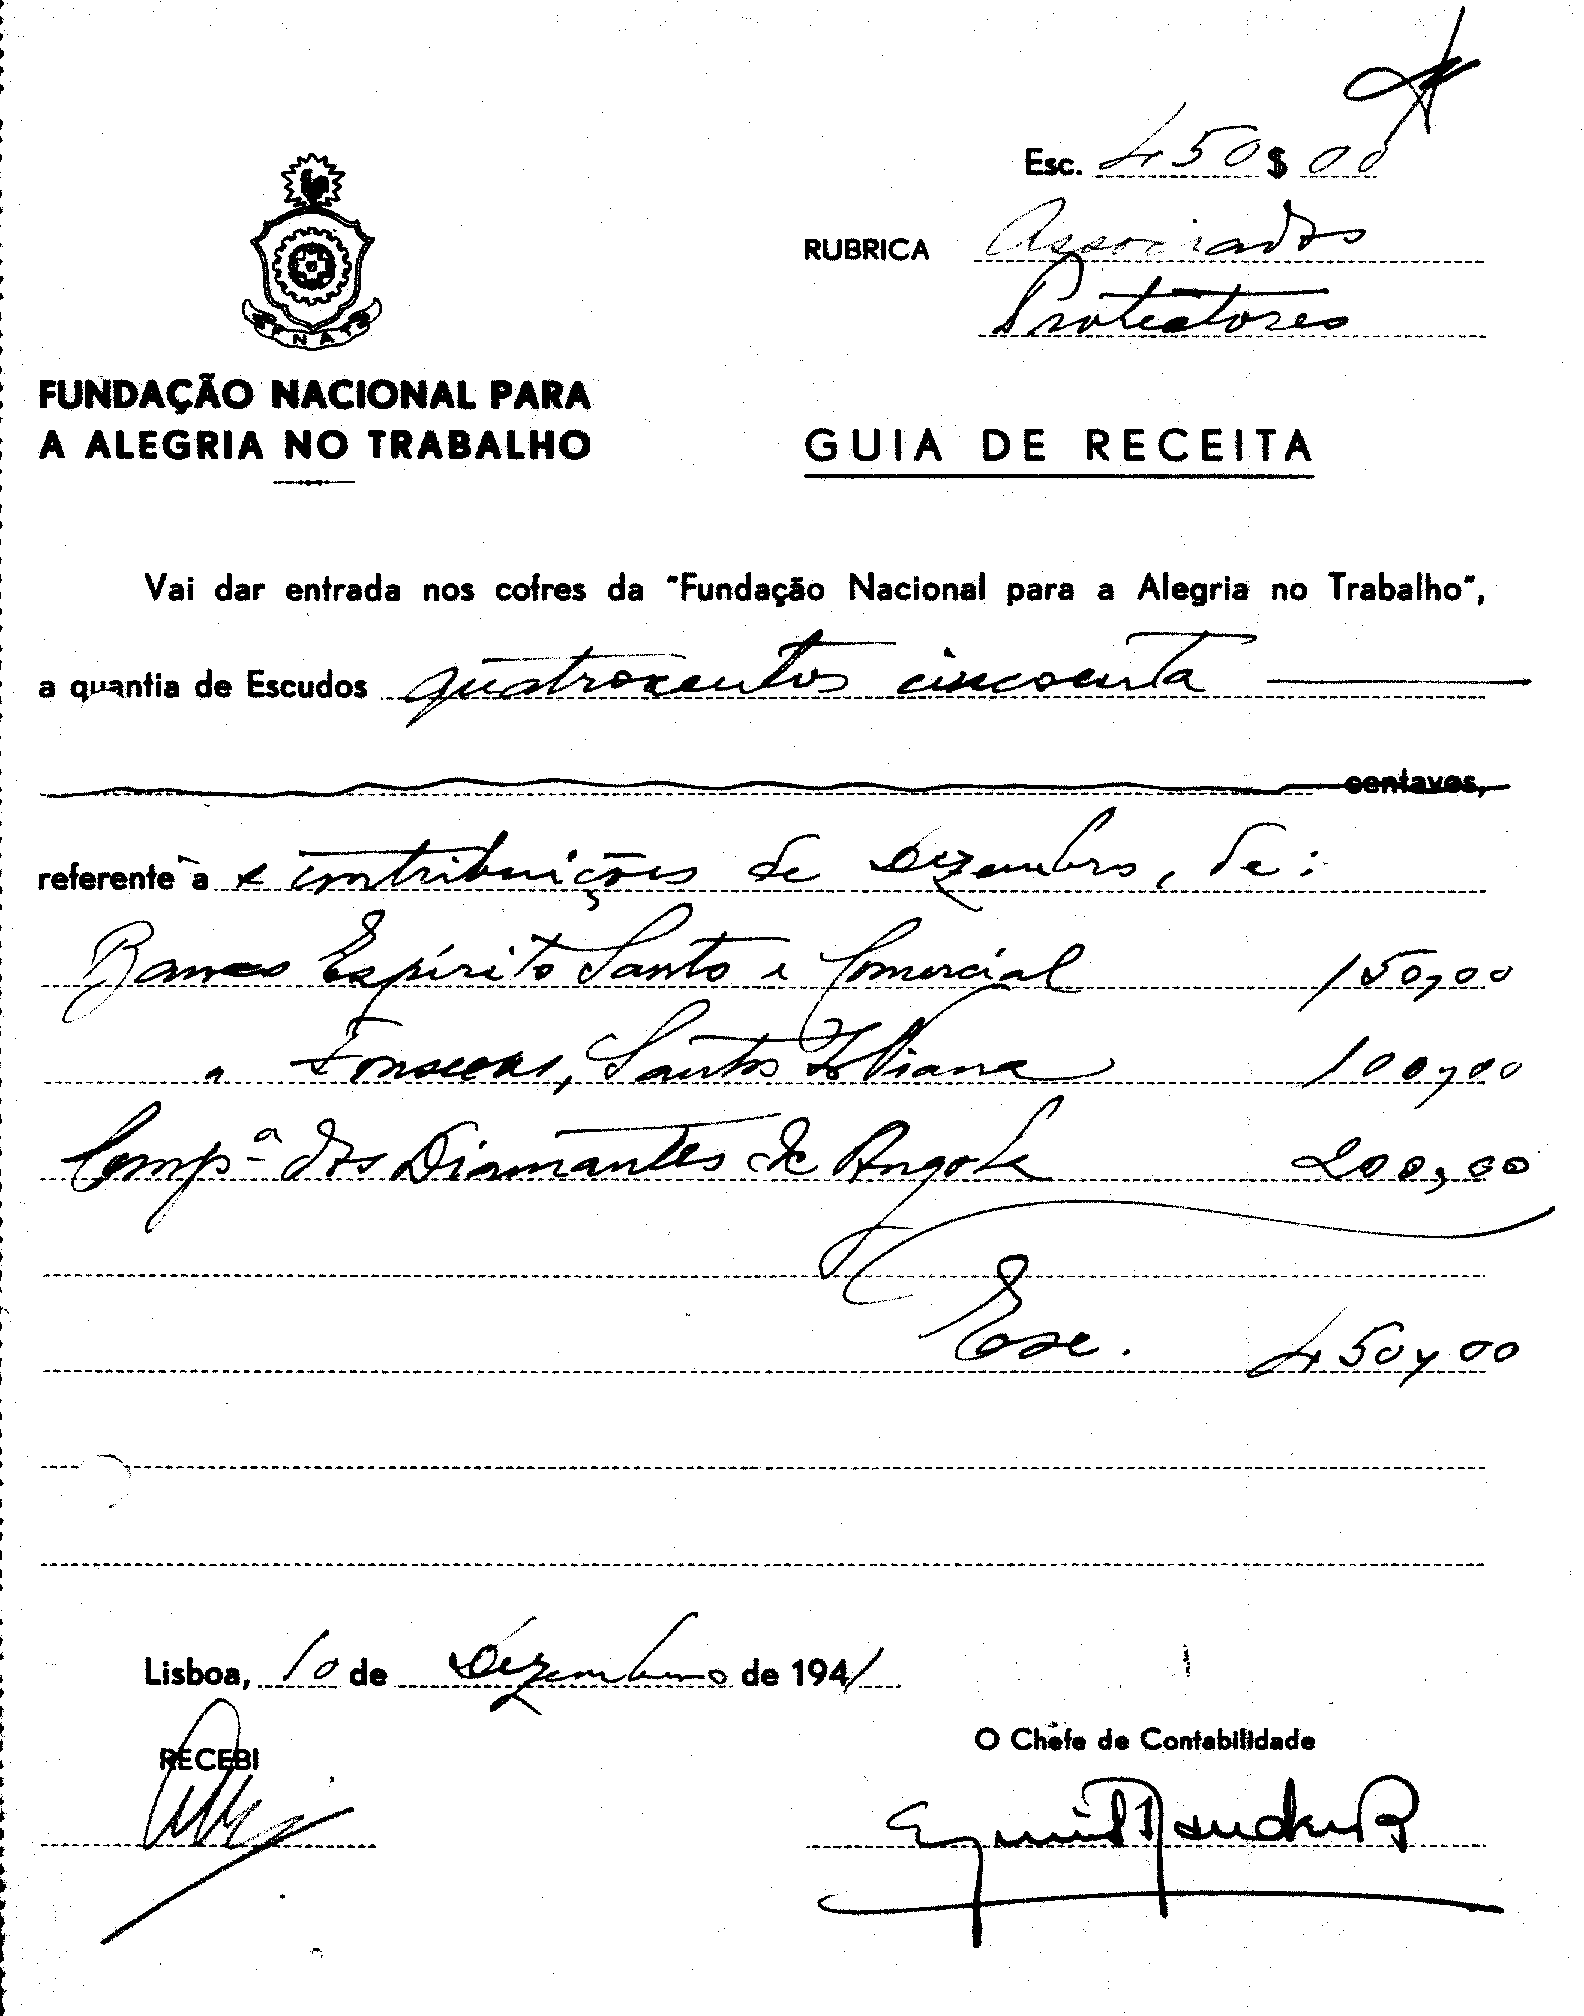 Esc. 450$00
RUBRICA Associados
Protectores
FNAT
FUNDAÇÃO NACIONAL PARA
A ALEGRIA NO TRABALHO
GUIA DE RECEITA
Vai dar entrada nos cofres da "Fundação Nacional para a Alegria no Trabalho",
a quantia de Escudos quatrocentos cincoenta
centavos,
referente a contribuições de Dezembro, de:
Banco Espírito Santo e Comercial 150,00
" Fonsecas, Santos & Viana 100,00
Comp.ª dos Diamantes de Angola 200,00
Esc. 450,00
Lisboa, 10 de Dezembro de 1941
RECEBI
O Chefe de Contabilidade